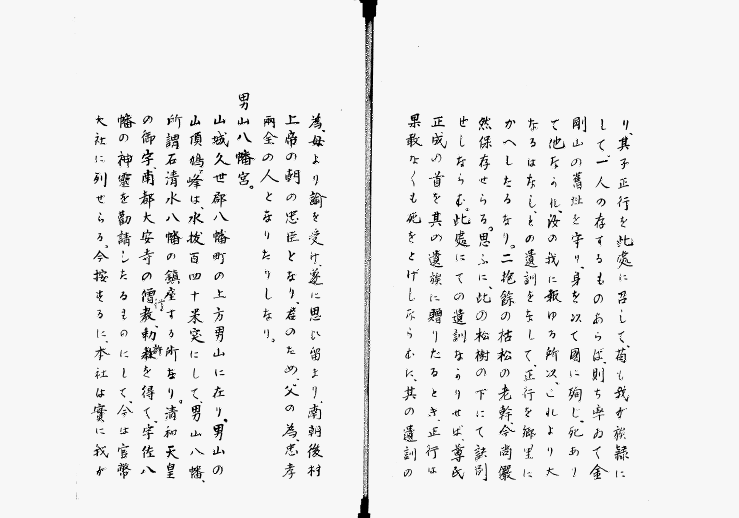 り、其子正行を此處に召して、苟も我が族緑に
して一人の存するものあらば、則ち率ゐて金
剛山の舊址を守り、身を以て國に殉じ、死あり
て他なかれ、汝の我に報ゆる所以、これより大
なるはなしとの遺訓をなして、正行を郷里に
かへしたるなり。二抱餘の枯松の老幹、今尚儼
然保存せらる。思ふに、此の松樹の下にて訣別
せしならむ。此處にての遺訓なかりせば、尊氏
正成の首を其の遺族に贈りたるとき、正行は
果敢なくも死をとげしならむに、其の遺訓の
為、母より諭を受け、遂に思ひ留まり、南朝後村
上帝の朝の忠臣となり、君のため、父の為、忠孝
兩全の人となりたりしなり。
男山八幡宮。
山城久世郡八幡町の上方男山に在り。男山の
山頂鳩ヶ峰は、水拔百四十米突にして、男山八幡、
所謂石清水八幡の鎮座する所なり。清和天皇
の御宇南都大安寺の僧行教、勅許を得て、宇佐八
幡の神靈を勸請したるものにして、今は官幣
大社に列せらる。今按ずるに、本社は實に我が